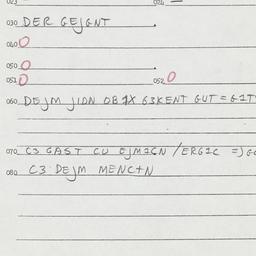 024
030 DER GEJGNT .
040 O
050 O .
051 O 052 O
060 DEJM JION OB 1X G3KENT GUT = G1T
070 C3 GAST CU EJM1GN / ERG1C =) GO
080 C3 DEJM MENC+N